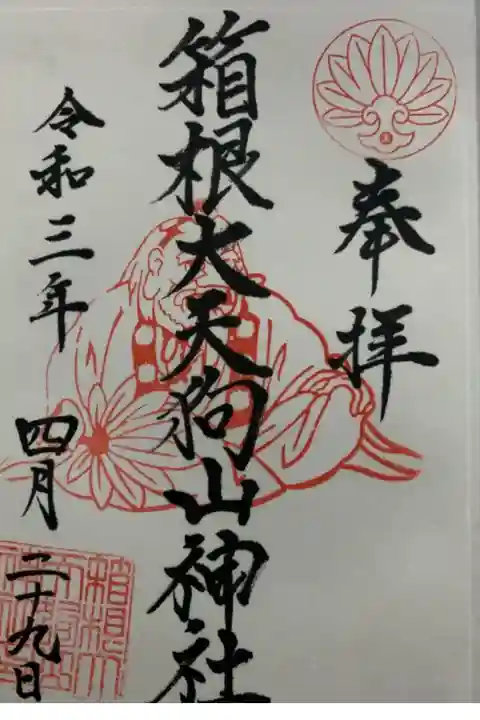 奉拝
箱根大天狗山神社
令和三年
四月
二十九日